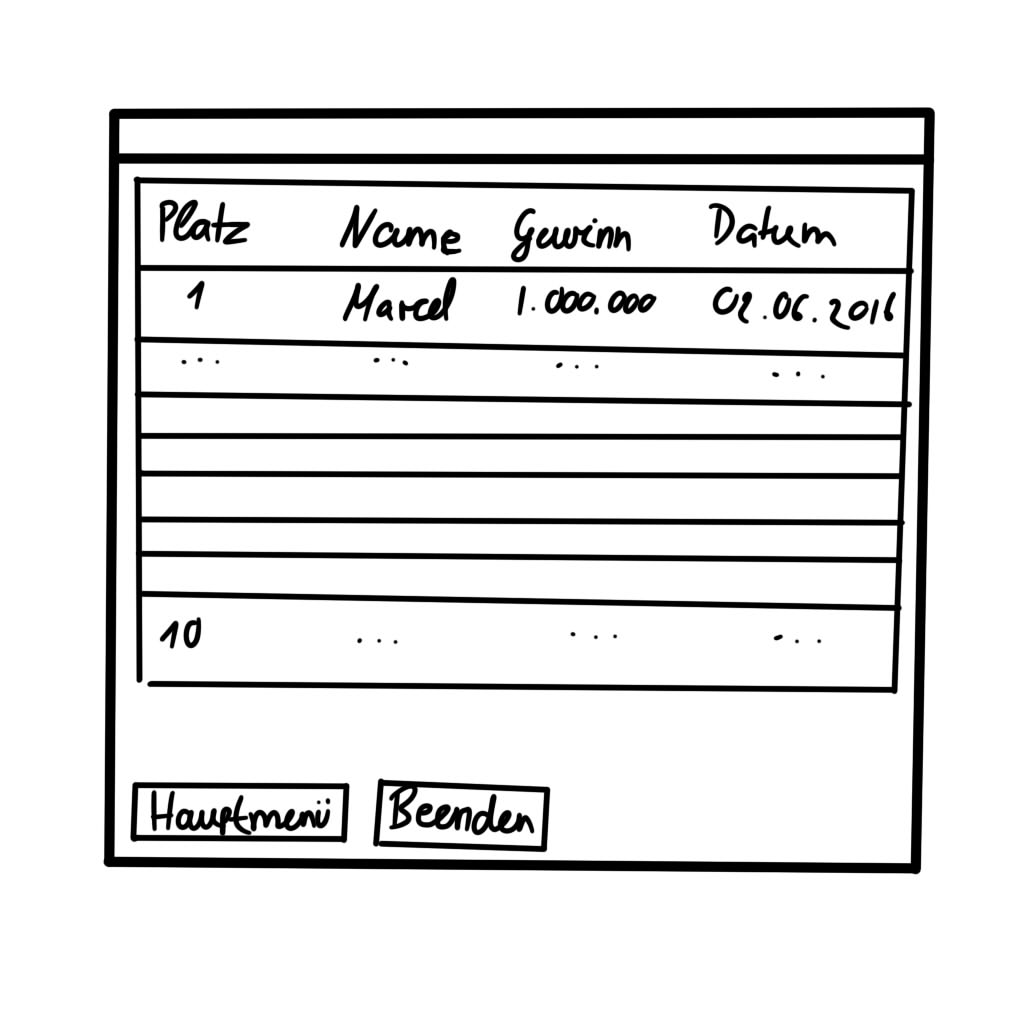 Platz Name Gewinn Datum
1 Marcel 1.000.000 02.06.2016
... ... ... ...
10 ... ... ...
Hauptmenü Beenden